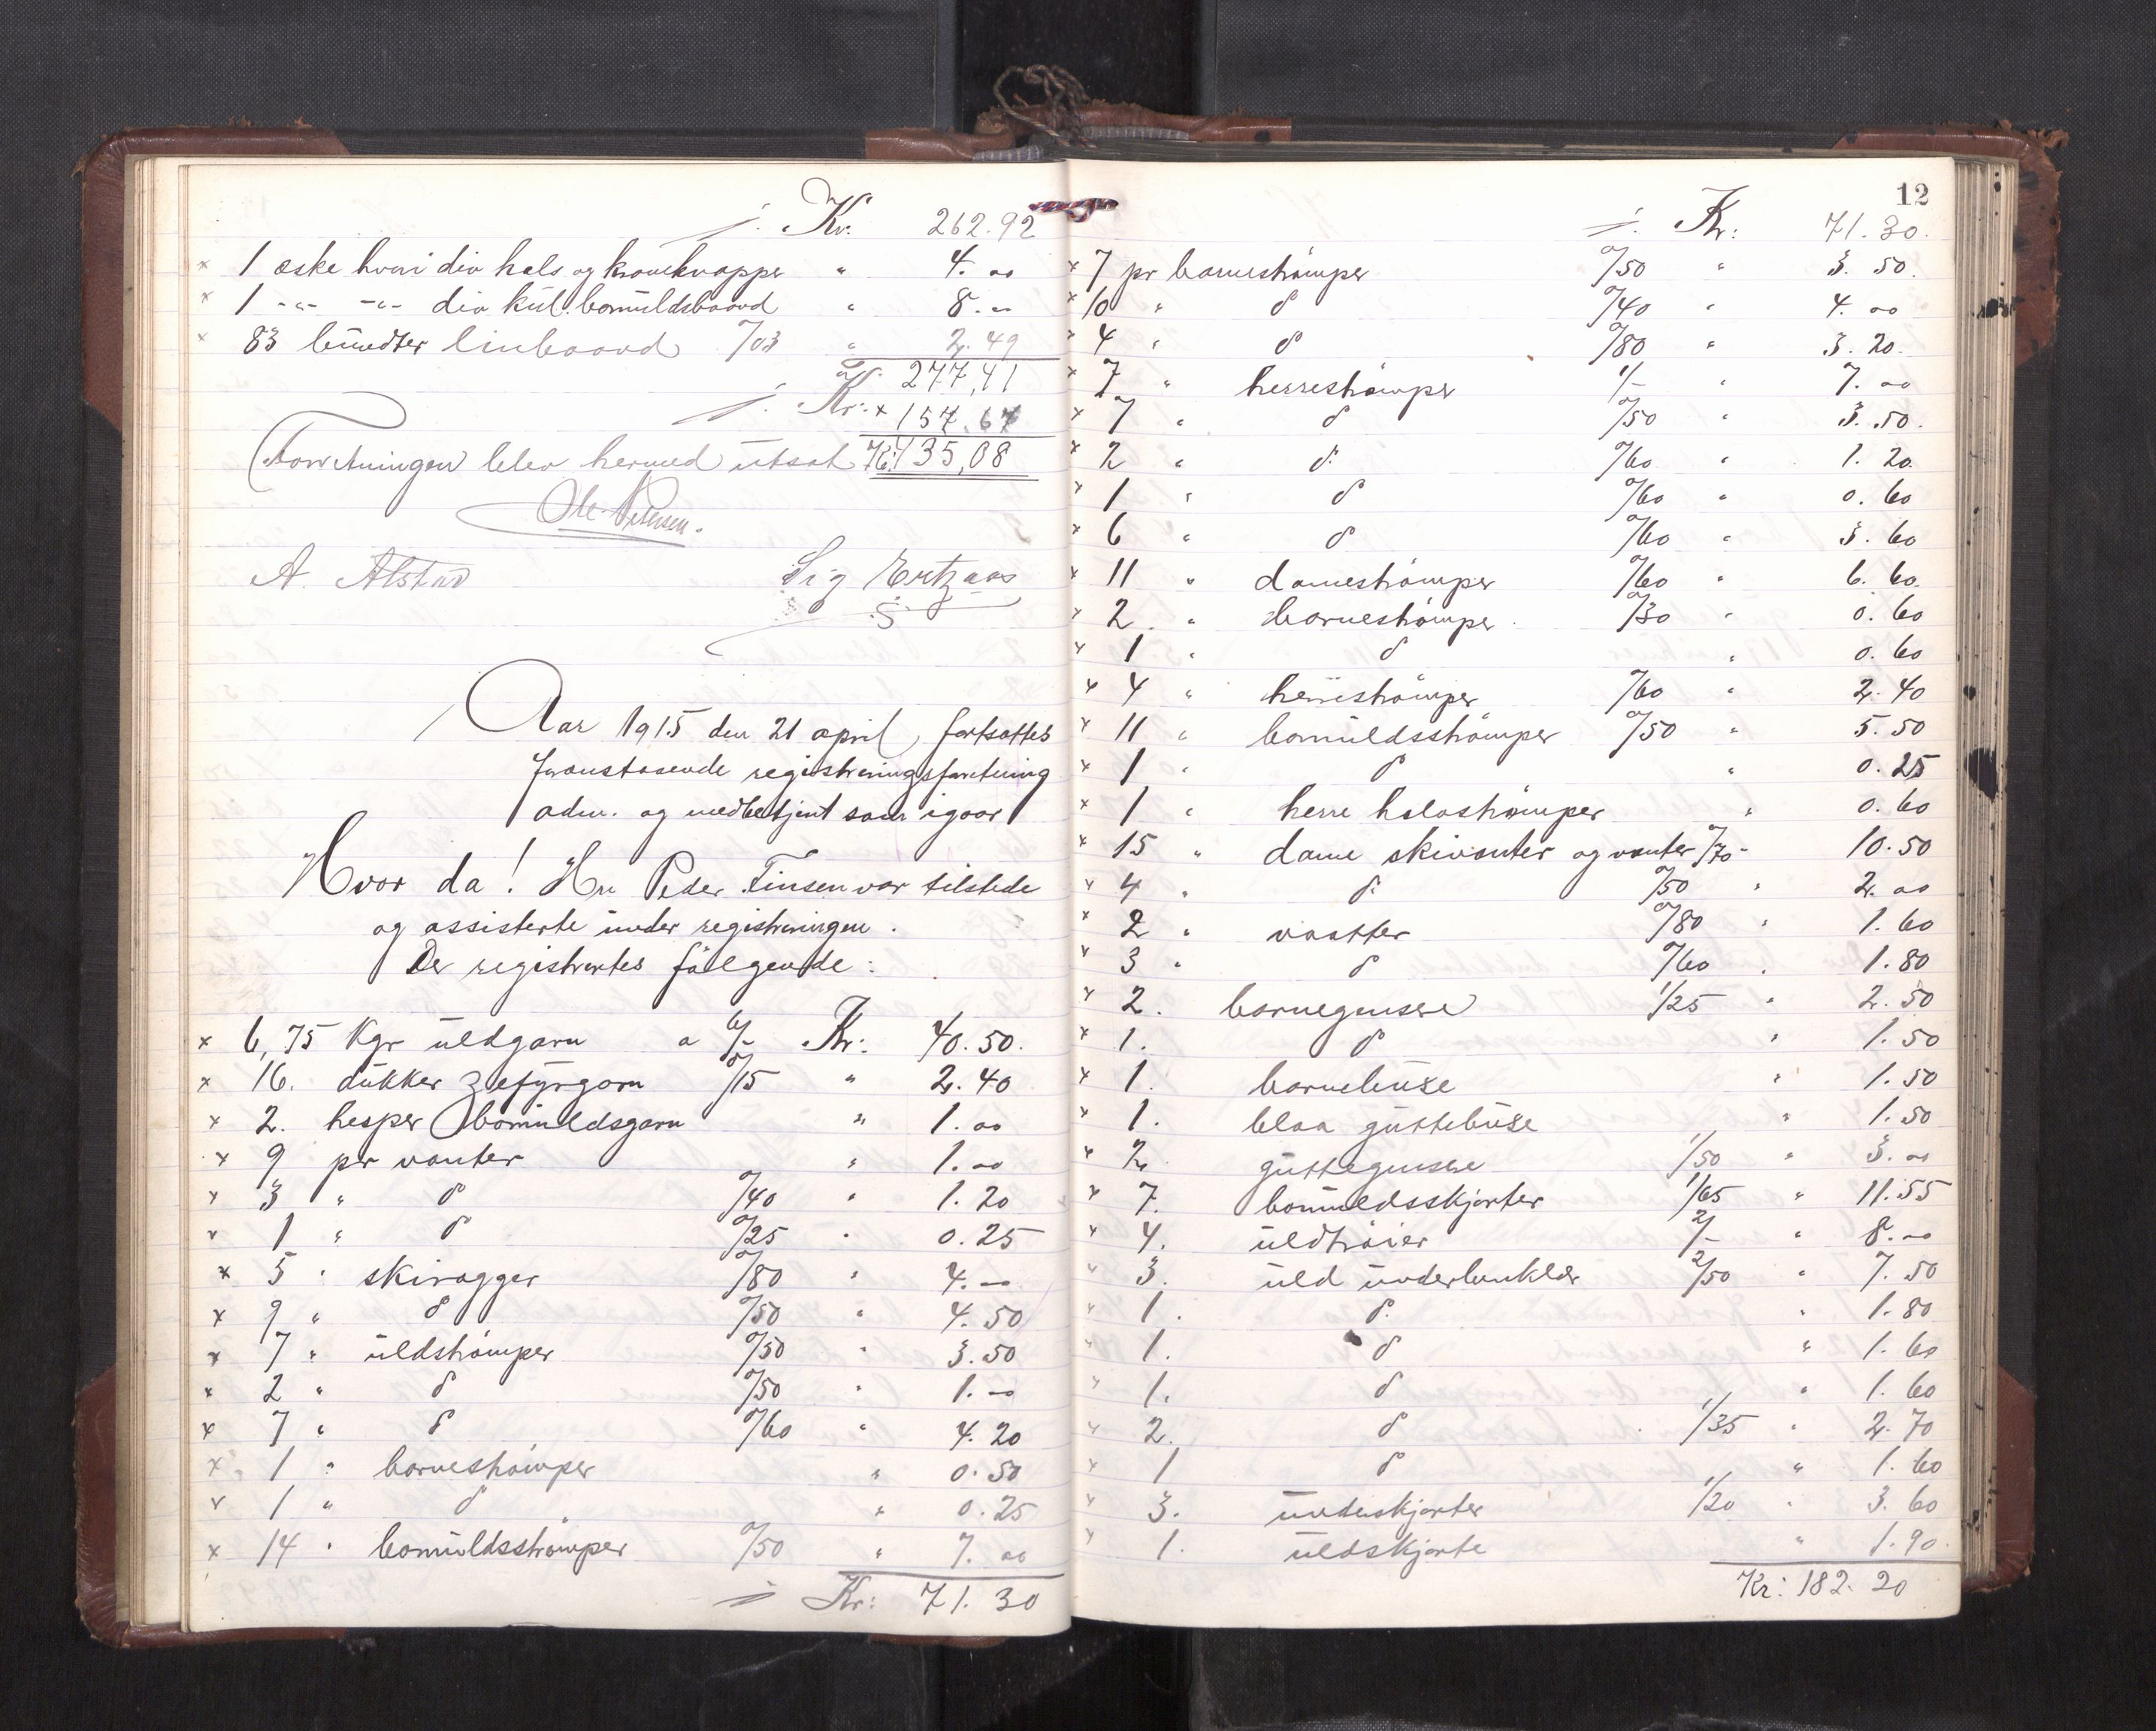 Kr. 262.92
× 1 æske hvori div hals og kraveknapper " 4. 00
× 1 -"- -"- div kul. bomuldsbaand " 8. 00
× 83 bundter linbaand 0/03 " 2. 49
Kr. 277,41
Kr: × 157,67
Forretningen blev hermed utsat Kr. 435,08
Ole Petersen.
A. Alstad Sig Ertzaas
Aar 1915 den 21 april, fortsattes
foranstaaende registreringsforretning
adm. og medbetjent som igaar
Hvor da! Hr Peder Finsen var tilstede
og assisterte under registreringen.
Der registrertes følgende:
× 6,75 Kgr uldgarn a 6/- Kr: 40.50.
× 16. dukker zefyrgarn 0/15 " 2.40
× 2. hesper bomuldsgarn " 1.00
× 9 pr vanter " 1.00
× 3 " d 0/40 " 1.20
× 1 " d 0/25 " 0.25
× 5 " skiragger 0/80 " 4.00
× 9 " d 0/50 " 4.50
× 7 " uldstrømper 0/50 " 3.50
× 2 " d 0/50 " 1.00
× 7 " d 0/60 " 4.20
× 1 " barnestrømper " 0.50
× 1 " d " 0.25
× 14 " bomuldsstrømper 0/50 " 7.00
Kr: 71.30
12
Kr: 71.30.
× 7 pr barnestrømper 0/50 " 3.50.
× 10 " d 0/40 " 4.00
× 4 " d 0/80 " 3.20.
× 7 " herrestrømper 1/- " 7.00
× 7 " d 0/50 " 3.50.
× 2 " d. 0/60 " 1.20.
× 1 " d 0/60 " 0.60
× 6 " d 0/60 " 3.60
× 11 " damestrømper 0/60 " 6.60.
× 2 " barnestrømper 0/30 " 0.60
× 1 " d " 0.60
× 4 " herrestrømper 0/60 " 2.40
× 11 " bomuldsstrømper 0/50 " 5.50
× 1 " d " 0.25
× 1 " herre halvstrømper " 0.60
× 15 " dame skivanter og vanter 0/70 - 10.50
× 4 " d. 0/50 " 2.00
× 2 " vaatter 0/80 " 1.60
× 3 " d 0/60 " 1.80
× 2. barnegensere 1/25 " 2.50
× 1. d " 1.50
× 1. barnebuxe " 1.50
× 1. blaa guttebuxe " 1.50
× 2 guttegensere 1/50 " 3.00
× 7. bomuldsskjorter 1/65 " 11.55
× 4. uldtrøier 2/- " 8.00
× 3. uld underbenklær 2/50 " 7.50
× 1. d. " 1.80
× 1. d " 1.60
× 1. d " 1.60
× 2. d 1/35 " 2.70
× 1 d " 1.60
× 3. underskjorter 1/20 " 3.60
× 1. uldskjorte " 1.90.
Kr: 182.20